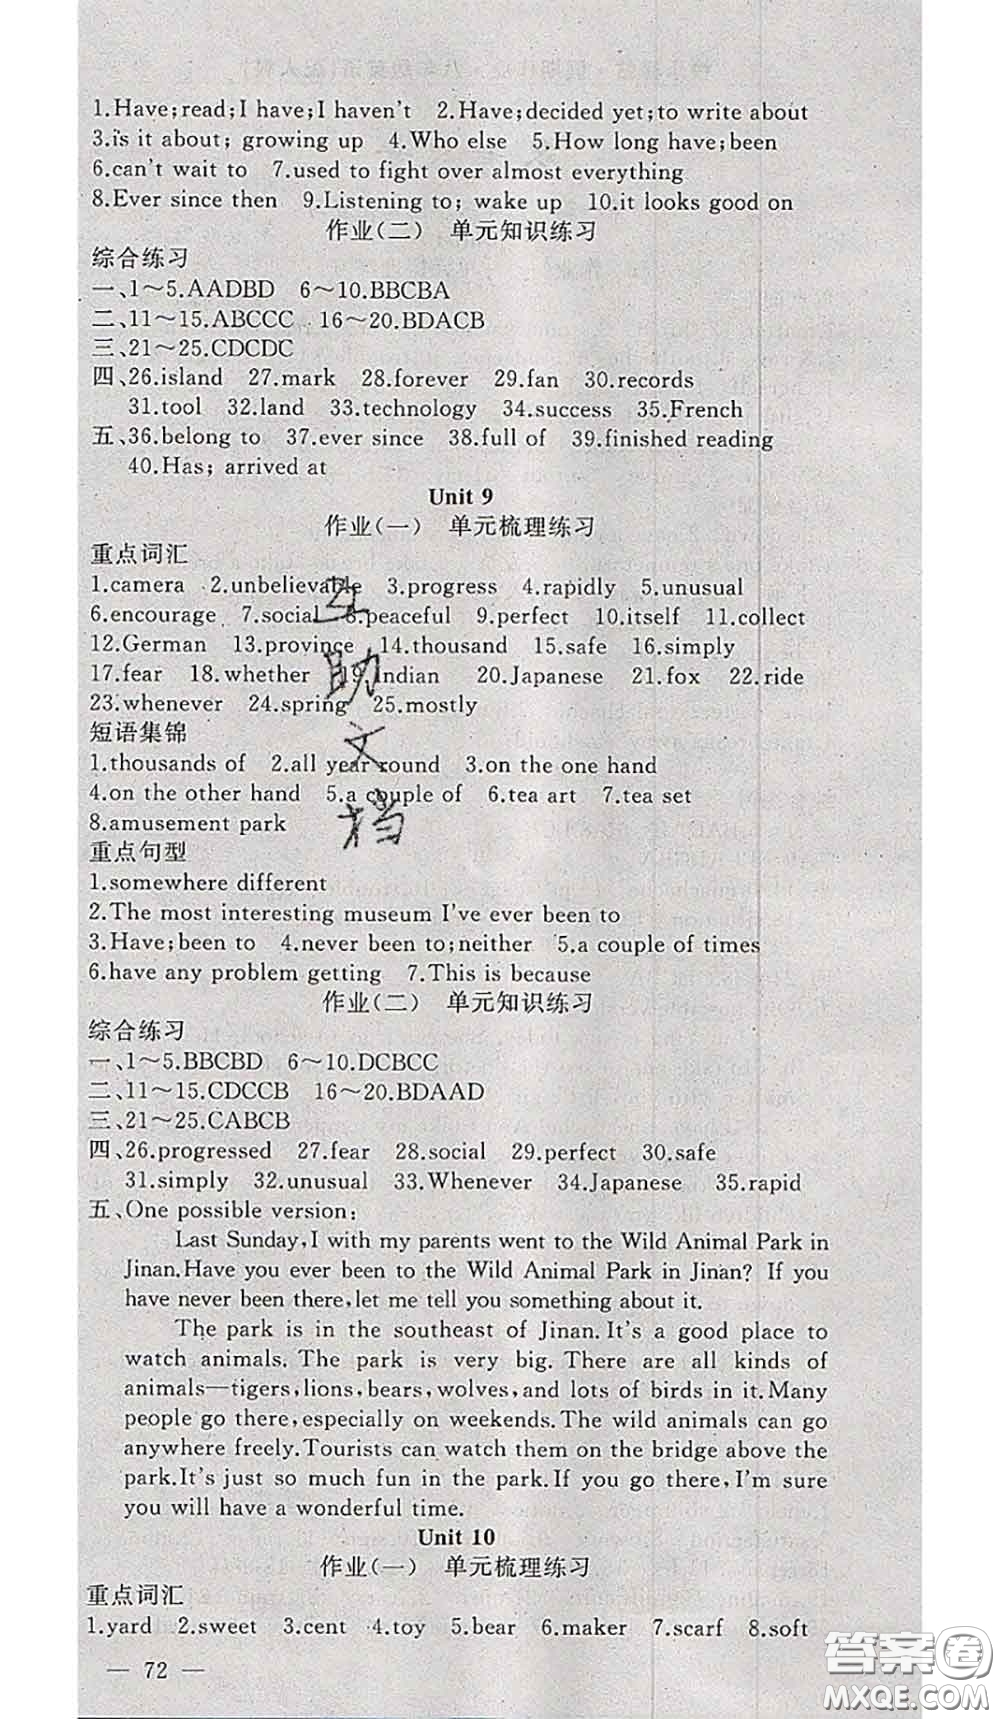 1.Have;read;I have;I haven't 2.Have;decided yet;to write about
3.is it about; growing up 4.Who else 5.How long have;been
6.can't wait to 7.used to fight over almost everything
8.Ever since then 9.Listening to; wake up 10.it looks good on
作业(二) 单元知识练习
综合练习
一、1～5.AADBD 6～10.BBCBA
二、11～15.ABCCC 16～20.BDACB
三、21～25.CDCDC
四、26.island 27.mark 28.forever 29.fan 30.records
31.tool 32.land 33.technology 34.success 35.French
五、36.belong to 37.ever since 38.full of 39.finished reading
40.Has; arrived at
Unit 9
作业(一) 单元梳理练习
重点词汇
1.camera 2.unbelievable 3.progress 4.rapidly 5.unusual
6.encourage 7.social 8.peaceful 9.perfect 10.itself 11.collect
12.German 13.province 14.thousand 15.safe 16.simply
17.fear 18.whether 19.Indian 20.Japanese 21.fox 22.ride
23.whenever 24.spring 25.mostly
短语集锦
1.thousands of 2.all year round 3.on the one hand
4.on the other hand 5.a couple of 6.tea art 7.tea set
8.amusement park
互
助
文
档
重点句型
1.somewhere different
2.The most interesting museum I've ever been to
3.Have;been to 4.never been to;neither 5.a couple of times
6.have any problem getting 7.This is because
作业(二) 单元知识练习
综合练习
一、1～5.BBCBD 6～10.DCBCC
二、11～15.CDCCB 16～20.BDAAD
三、21～25.CABCB
四、26.progressed 27.fear 28.social 29.perfect 30.safe
31.simply 32.unusual 33.Whenever 34.Japanese 35.rapid
五、One possible version:
Last Sunday,I with my parents went to the Wild Animal Park in
Jinan.Have you ever been to the Wild Animal Park in Jinan? If you
have never been there,let me tell you something about it.
The park is in the southeast of Jinan.It's a good place to
watch animals. The park is very big. There are all kinds of
animals—tigers,lions,bears,wolves,and lots of birds in it.Many
people go there,especially on weekends.The wild animals can go
anywhere freely.Tourists can watch them on the bridge above the
park.It's just so much fun in the park.If you go there,I'm sure
you will have a wonderful time.
Unit 10
作业(一) 单元梳理练习
重点词汇
1.yard 2.sweet 3.cent 4.toy 5.bear 6.maker 7.scarf 8.soft
— 72 —
答案圈
MXQE.COM